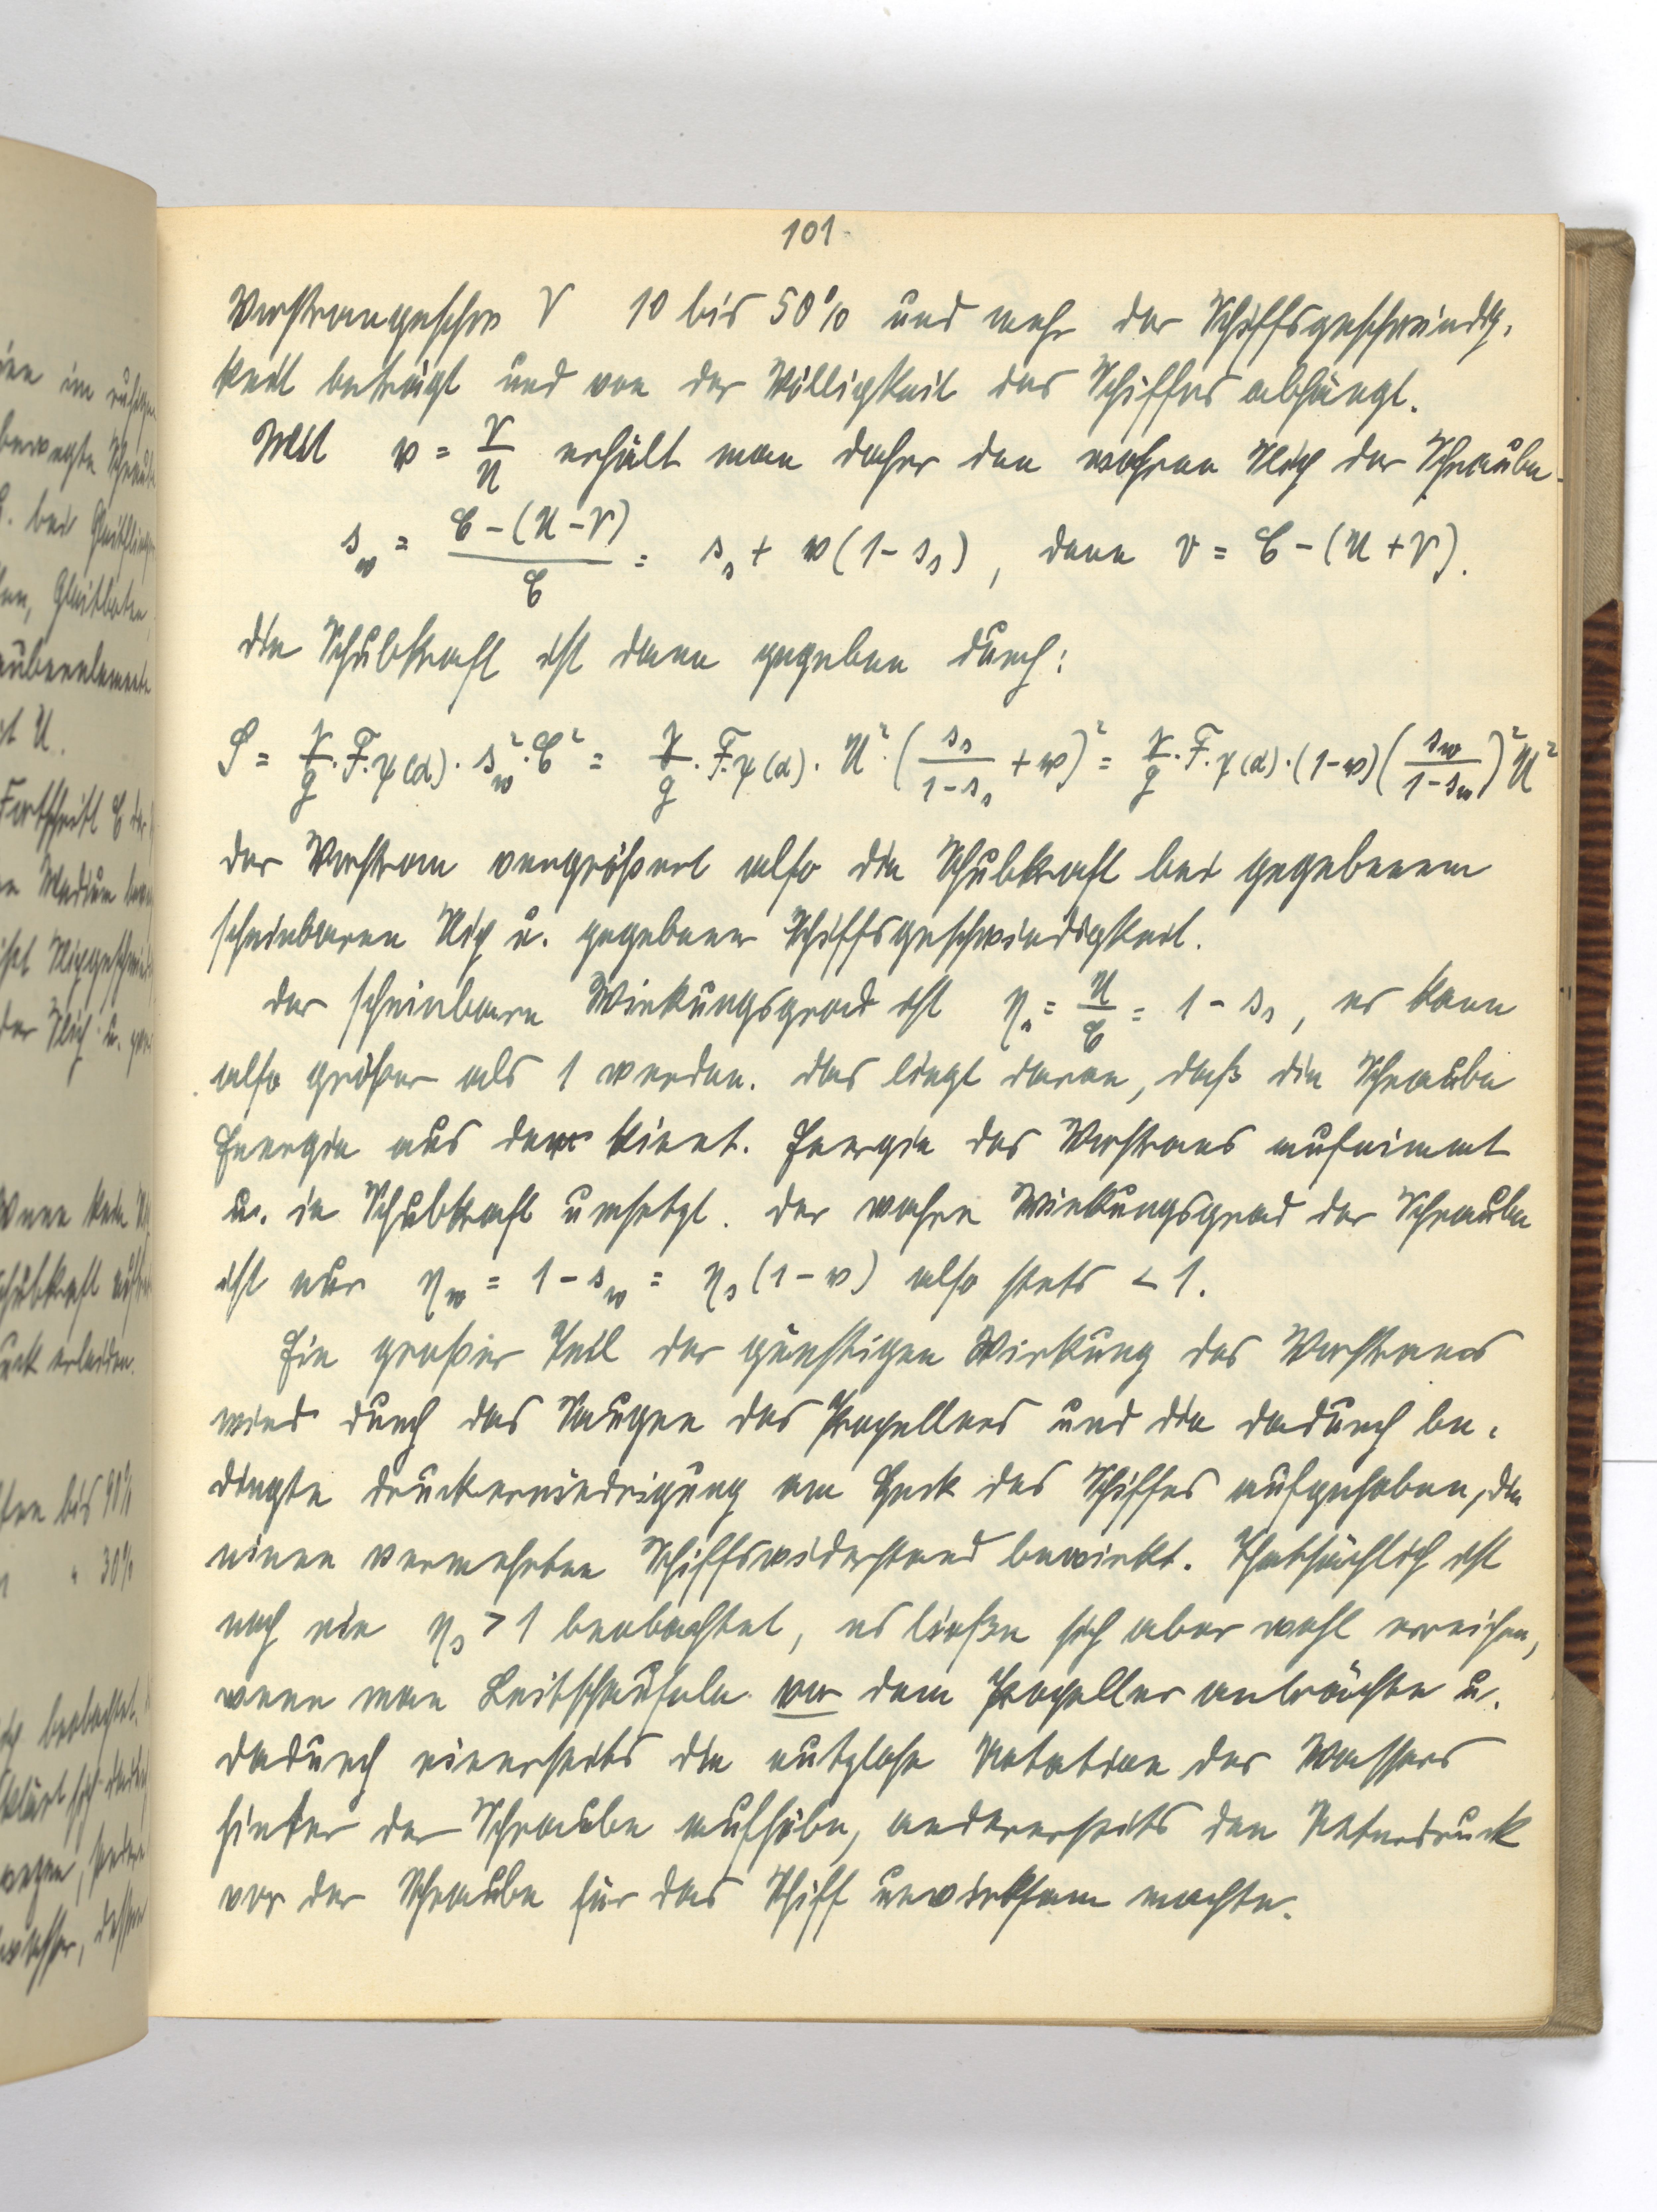 101.
Vorstromgeschw V 10 bis 50% und mehr der Schiffsgeschwindig-
keit beträgt und von der Völligkeit des Schiffes abhängt.
Mit w = V/U erhält man daher den wahren Slip der Schraube.
s_w = (C - (U - V))/C = s_s + w(1 - s_s), denn v = C - (U + V).
die Schubkraft ist dann gegeben durch:
S = γ/g · F · φ(α) · s_w² · C² = γ/g · F · φ(α) · U² · (s_s/(1 - s_s) + w)² = γ/g · F · φ(α) · (1 - w)(s_w/(1 - s_w))² U²
der Vorstrom vergrößert also die Schubkraft bei gegebenem
scheinbaren Slip u. gegebener Schiffsgeschwindigkeit.
der scheinbare Wirkungsgrad ist η_s = U/C = 1 - s_s, er kann
also größer als 1 werden. das liegt daran, daß die Schraube
Energie aus der kinet. Energie des Vorstroms aufnimmt
u. in Schubkraft umsetzt. der wahre Wirkungsgrad der Schraube
ist nur η_w = 1 - s_w = η_s (1 - w) also stets < 1.
Ein großer Teil der günstigen Wirkung des Vorstroms
wird durch das Saugen des Propellers und die dadurch be-
dingte druckerniedrigung am Heck des Schiffes aufgehoben, die
einen vermehrten Schiffswiderstand bewirkt. Thatsächlich ist
noch nie η_s > 1 beobachtet, es ließen sich aber wohl erreichen,
wenn man Leitschaufeln vor dem Propeller anbrächte u.
dadurch einerseits die nutzlose Rotation des Wassers
hinter der Schraube aufhöbe, andererseits den Unterdruck
vor der Schraube für das Schiff unwirksam machte.